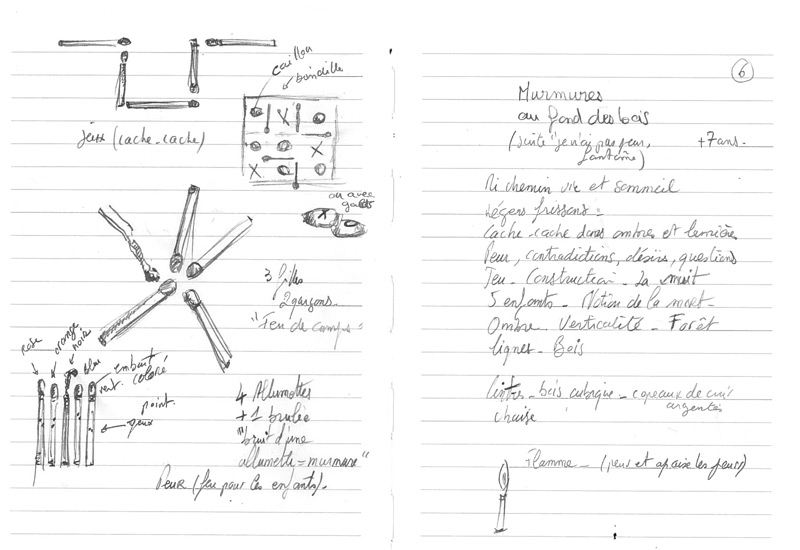 caillou
brindille
jeux (cache-cache)
ou avec
galets
3 filles
2 garçons.
"Feu de camps"
rose
orange
noir
bleu
vert.
embout
coloré
point.
yeux
4 Allumettes
+ 1 brulée
"bruit d'une
allumette = murmure"
Peur (feu pour les enfants).
6
Murmures
au fond des bois
(suite "je n'ai pas peur,
fantôme)
+7 ans.
Mi chemin vie et sommeil
Légers frissons =
Cache-cache dans ombres et lumière
Peur, contradictions, désirs, questions
Jeu - Construction - La nuit
5 enfants - Notion de la mort -
Ombre - Verticalité - Forêt
Lignes - Bois
bois cubique - copeaux de cuir
argentés
chaise
Flamme - (peur et apaise les peurs)